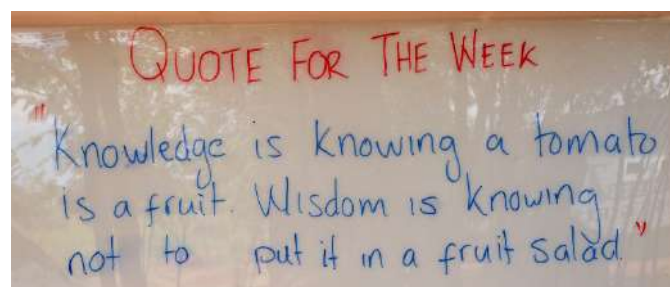 QUOTE FOR THE WEEK
"Knowledge is knowing a tomato
is a fruit. Wisdom is knowing
not to put it in a fruit salad."